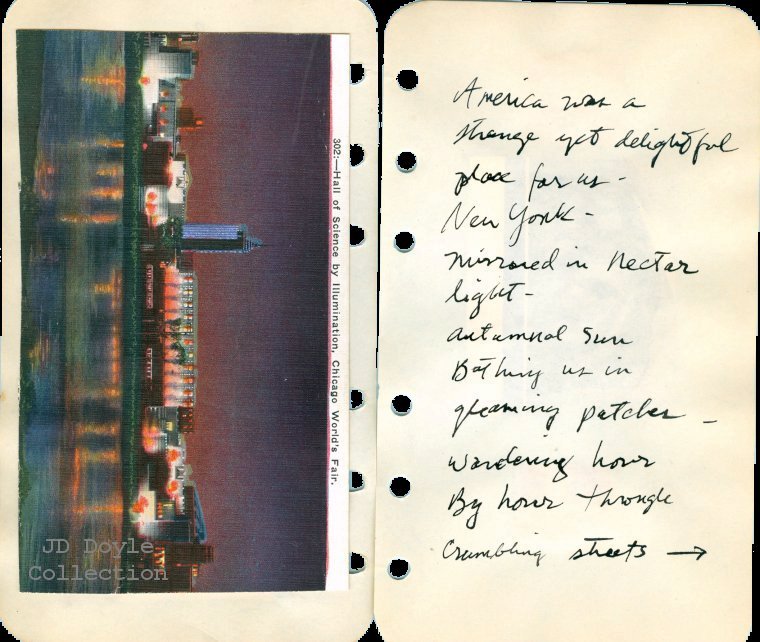 302:—Hall of Science by Illumination, Chicago World's Fair.
JD Doyle
Collection
America was a
strange yet delightful
place for us -
New York -
mirrored in Nectar
light -
autumnal Sun
Bathing us in
gleaming patches -
wandering hour
By hour through
Crumbling streets →